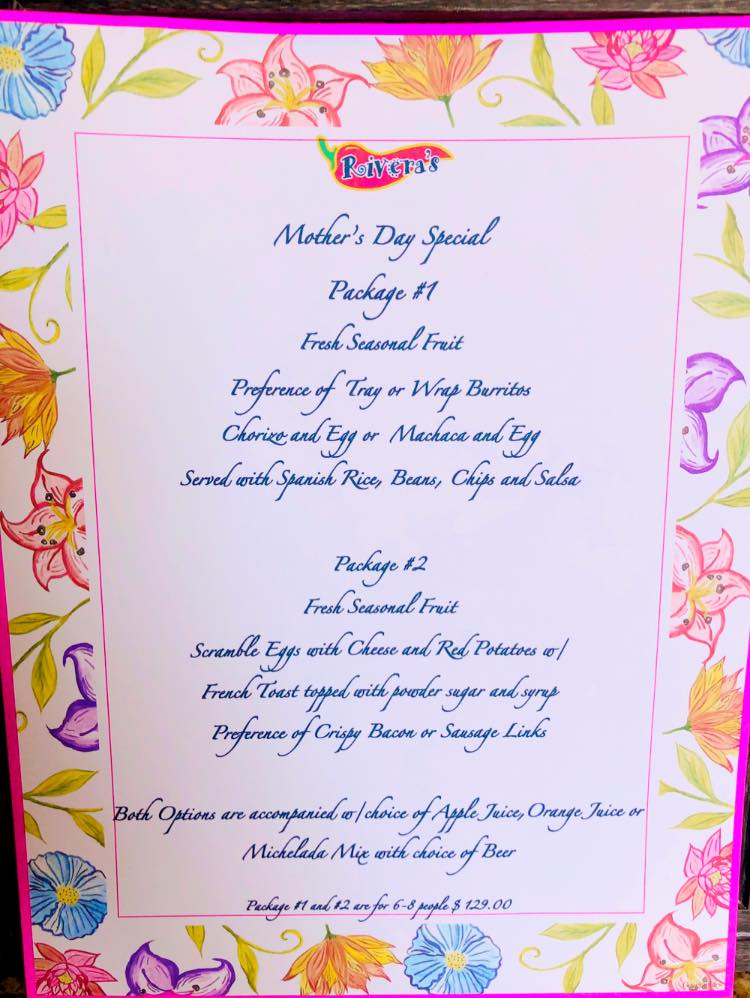 Rivera's
Mother's Day Special
Package #1
Fresh Seasonal Fruit
Preference of Tray or Wrap Burritos
Chorizo and Egg or Machaca and Egg
Served with Spanish Rice, Beans, Chips and Salsa
Package #2
Fresh Seasonal Fruit
Scramble Eggs with Cheese and Red Potatoes w/
French Toast topped with powder sugar and syrup
Preference of Crispy Bacon or Sausage Links
Both Options are accompanied w/choice of Apple Juice, Orange Juice or
Michelada Mix with choice of Beer
Package #1 and #2 are for 6-8 people $ 129.00